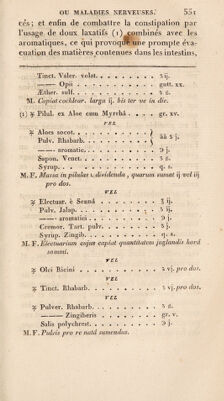 OU MALADIES NERVEUSES. 551
cés ; et enfin de combattre la constipation par
l'usage de doux laxatifs (1) combinés avec les
aromatiques, ce qui provoque une prompte éva-
cuation des matières contenues dans les intestins.
Tinct. Valer. volat. ℥ ij.
—— Opii gutt. xx.
Æther. sulf. ʒ ß.
M. Capiat cochlear. larga ij. bis ter ve in die.
(1) ℞ Pilul. ex Aloe cum Myrrhâ gr. xv.
VEL
℞ Aloes socot.
Pulv. Rhabarb. āā ℈ j.
—— aromatic. ℈ j.
Sapon. Venet. ʒ ß.
Syrup. q. s.
M. F. Massa in pilulas dividenda, quarum sumat ij vel iij
pro dos.
VEL
℞ Electuar. è Sennâ ℥ ij.
Pulv. Jalap. ʒ j.
—— aromatici ℈ j.
Cremor. Tart. pulv. ʒ ij.
Syrup. Zingib. q. s.
M. F. Electuarium cujus capiat quantitatem juglandis hord
somni.
VEL
℞ Olei Ricini ʒ vj. pro dos.
VEL
℞ Tinct. Rhabarb. ʒ vj. pro dos.
VEL
℞ Pulver. Rhabarb. ʒ ß.
—— Zingiberis gr. v.
Salis polychrest. ℈ j.
M. F. Pulvis pro re natâ sumendus.